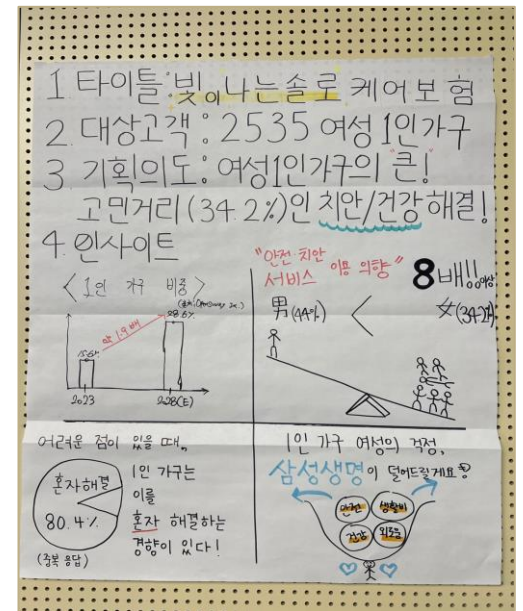 1 타이틀: 빛이나는솔로 케어보험
2. 대상고객 : 2535 여성 1인가구
3 기획의도 : 여성1인가구의 "큰!"
고민거리 (34.2%)인 치안/건강 해결!
4. 인사이트
<1인 가구 비중>
약 1.9배
15.6%
28.6%
2023
2028(E)
"안전·치안
서비스 이용 의향" 8배!! 이상
男(4.4%) < 女(34.2%)
어려운 점이 있을 때,
혼자해결
80.4%
(중복 응답)
1인 가구는
이를
혼자 해결하는
경향이 있다!
1인 가구 여성의 걱정,
삼성생명이 덜어드릴게요?
안전 생활비
건강 외로움